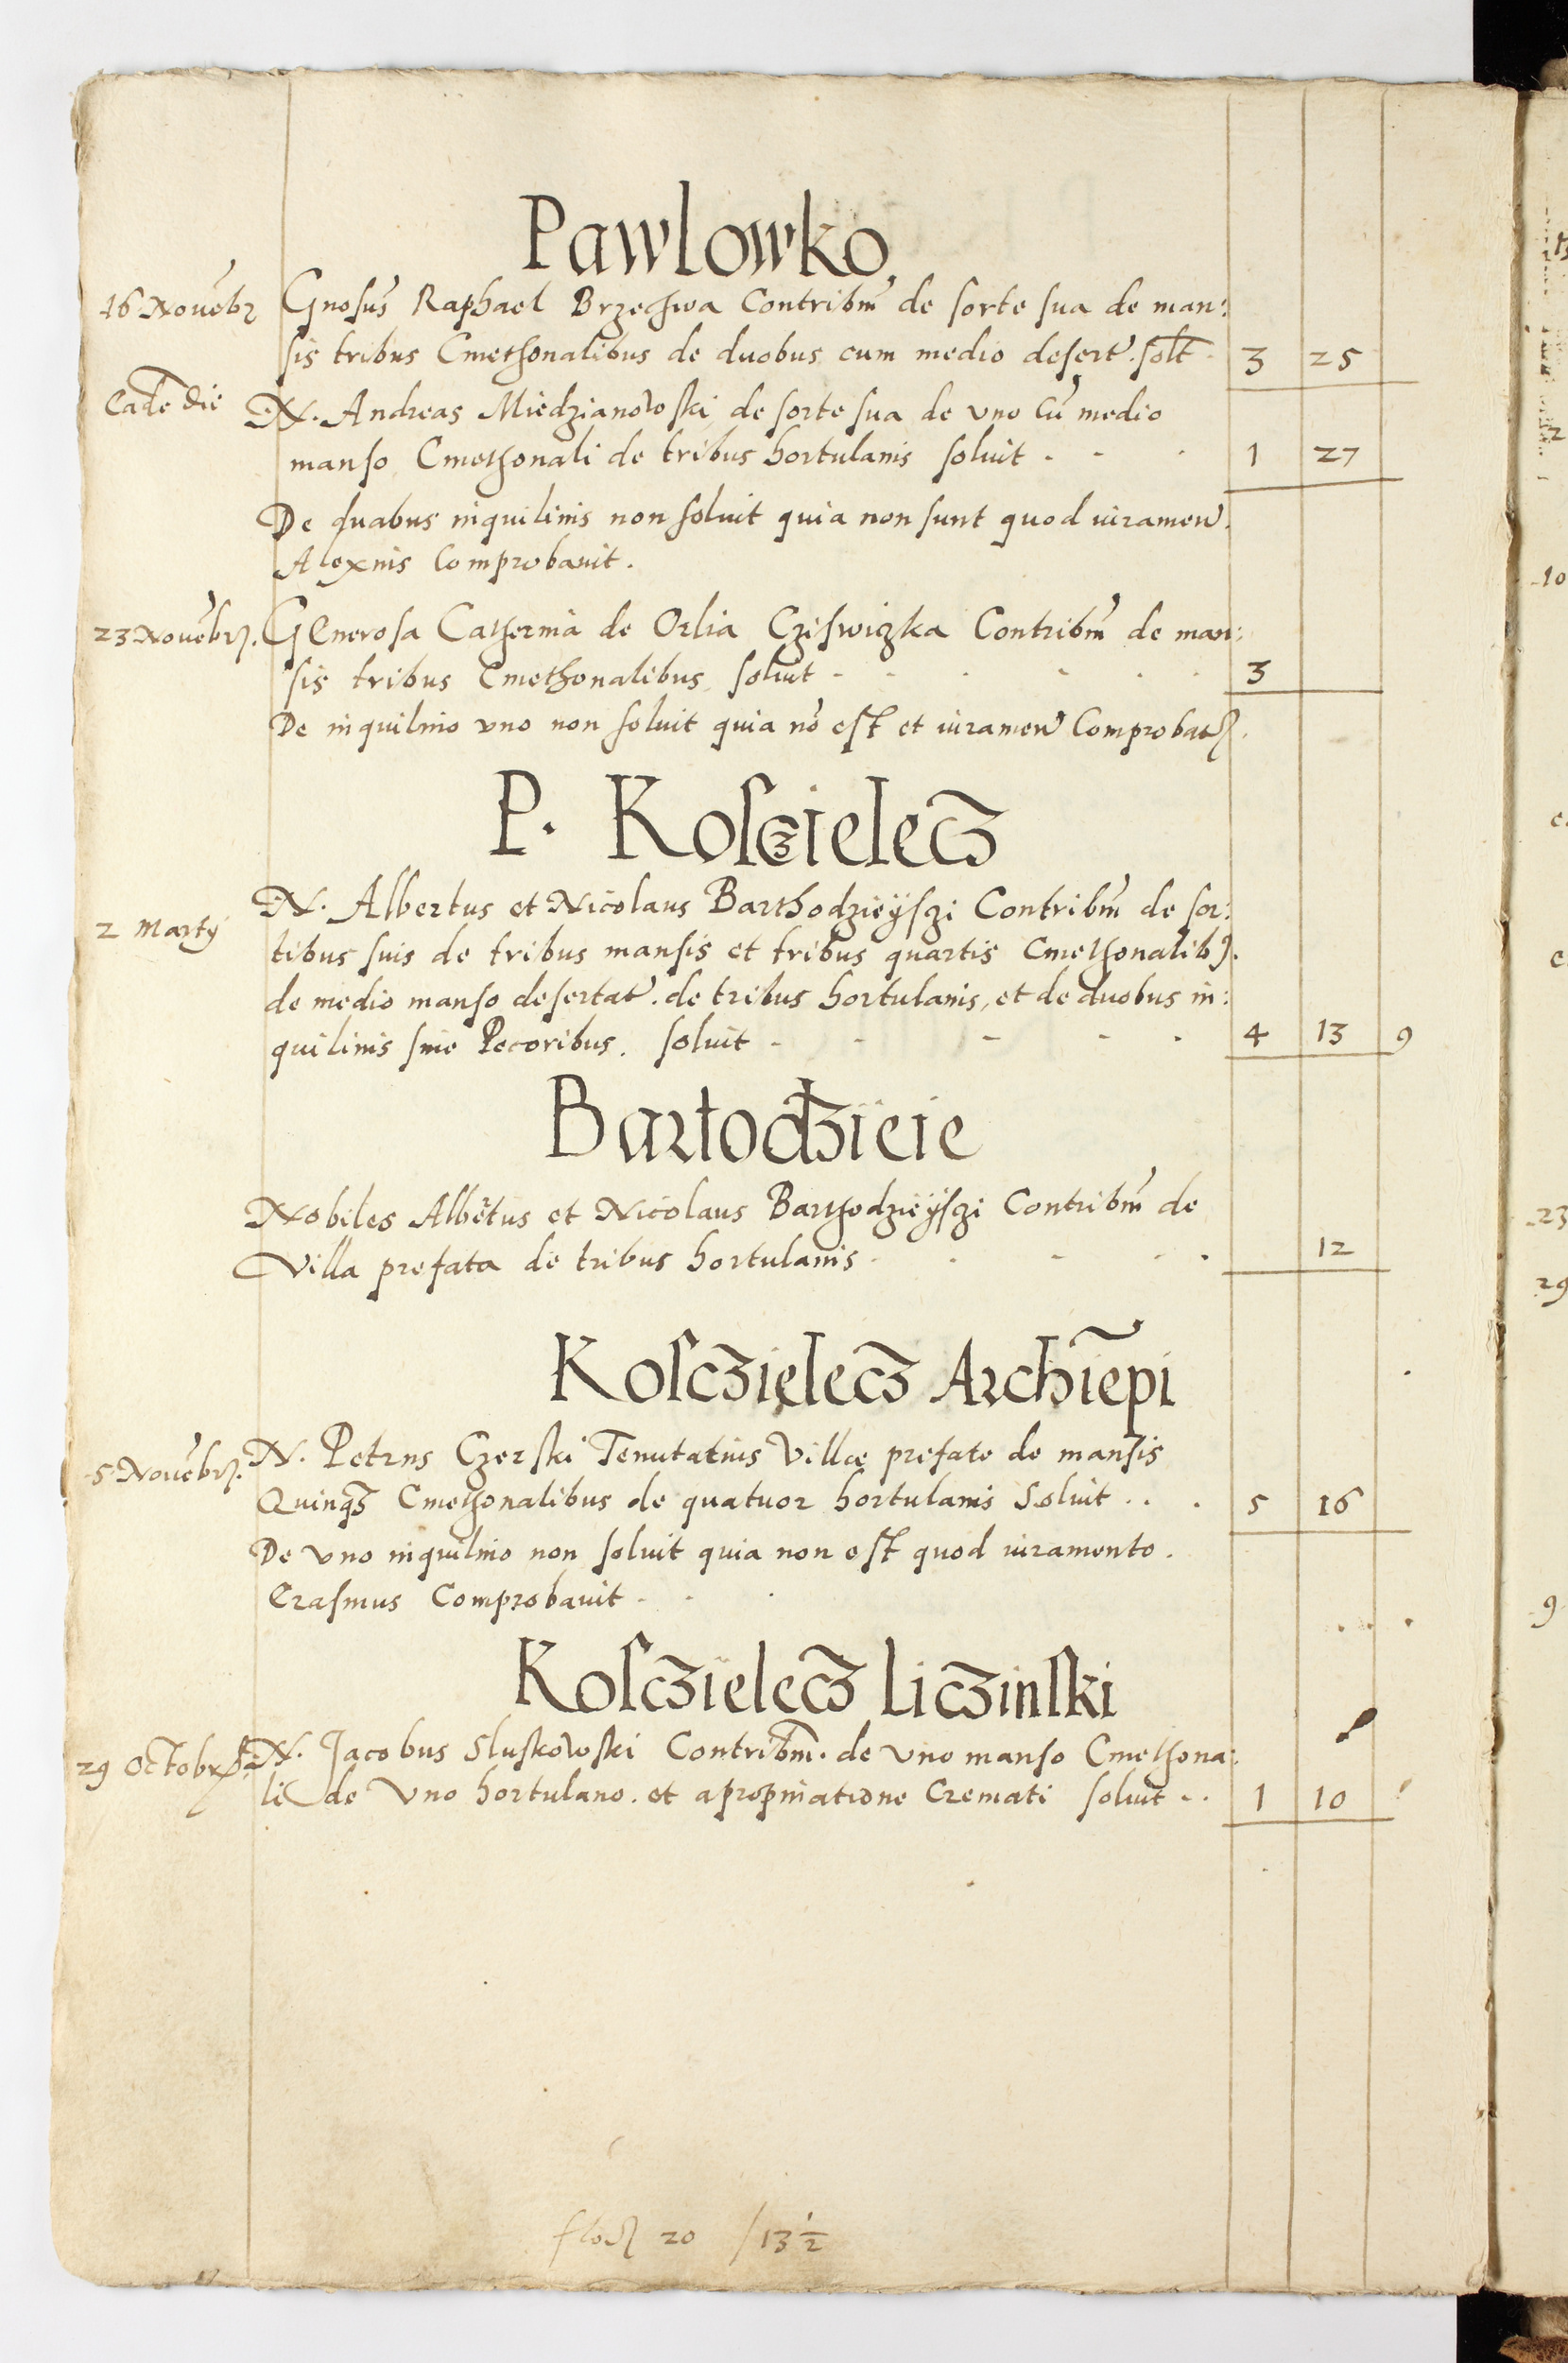 Pawlowko
16 Novēbr Gnosus Raphael Brzechwa Contribm de sorte sua de man:
sis tribus Cmethonalibus de duobus cum medio desert. solt 3 25
Eadē die N. Andreas Miedzianowski de sorte sua de uno cū medio
manso Cmethonali de tribus hortulanis soluit - - - 1 27
De duabus inquilinis non soluit quia non sunt quod iuramen.
Alexius Comprobavit.
23 Novēbr. GEnerosa Catherina de Orlia Cziswiczka Contribm de man:
sis tribus Cmethonalibus soluit - - - - - - 3
De inquilino uno non soluit quia nō est et iuramen Comprobat.
P. Kosczielecz
2 Marty N. Albertus et Nicolaus Barthodzieyszi Contribm de sor:
tibus suis de tribus mansis et tribus quartis Cmethonalib.
de medio manso desertat. de tribus hortulanis, et de duobus in:
quilinis sine Pecoribus. soluit - - - - - 4 13 9
Bartodzieie
Nobiles Albertus et Nicolaus Barthodzieyszi Contribm de
Villa prefata de tribus hortulanis - - - - - 12
Kosczielecz Archiēpi
5 Novēbr. N. Petrus Czerski Tenutarius Villae prefate de mansis
Quinqz Cmethonalibus de quatuor hortulanis Soluit . . . 5 16
De uno inquilino non soluit quia non est quod iuramento.
Erasmus Comprobavit - - -
Kosczielecz Liczinski
29 Octobr. N. Jacobus Sluskowski Contribm. de uno manso Cmethona:
li de Uno hortulano. et apropinatione Cremati soluit - . 1 10
20 / 13 ½